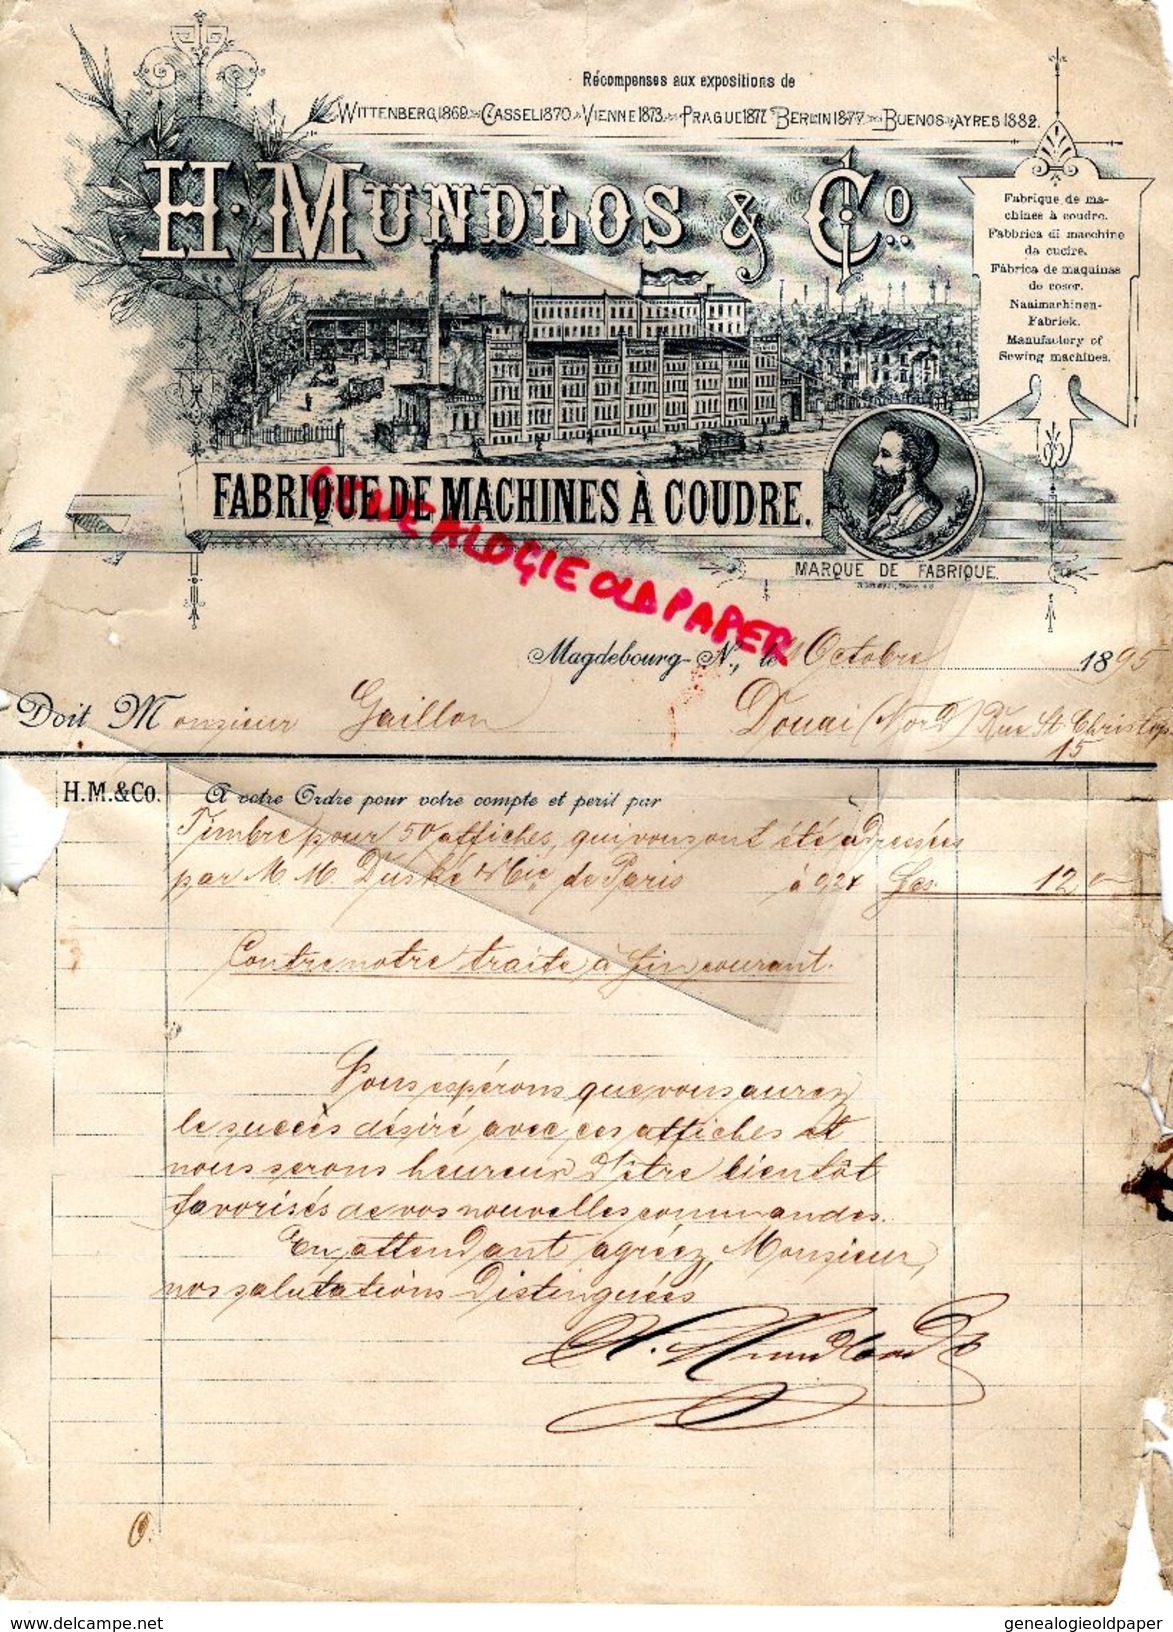 Récompenses aux expositions de
WITTENBERG 1869. CASSEL 1870. VIENNE 1873. PRAGUE 1877. BERLIN 1877. BUENOS-AYRES 1882.
H. MUNDLOS & Co.
Fabrique de ma-
chines à coudre.
Fabbrica di macchine
da cucire.
Fábrica de maquinas
de coser.
Naaimachinen-
Fabriek.
Manufactory of
Sewing machines.
FABRIQUE DE MACHINES À COUDRE.
MARQUE DE FABRIQUE.
GENEALOGIE OLD PAPER
Magdebourg-N., le Octobre 1895
Doit Monsieur Gaillon Douai (Nord) Rue St. Christop.
15
H.M.&Co. A votre Ordre pour votre compte et peril par
Timbre pour 50 affiches, qui vous ont été adressées
par M. M. Duské & Cie de Paris à 0,24 Fcs. 12
Contre notre traite à fin courant.
Nous espérons que vous aurez
le succès désiré avec ces affiches et
nous serons heureux d'être bientôt
favorisés de vos nouvelles commandes.
En attendant agréez, Monsieur,
nos salutations distinguées
H. Mundlos & Co
delcampe.net
genealogieoldpaper